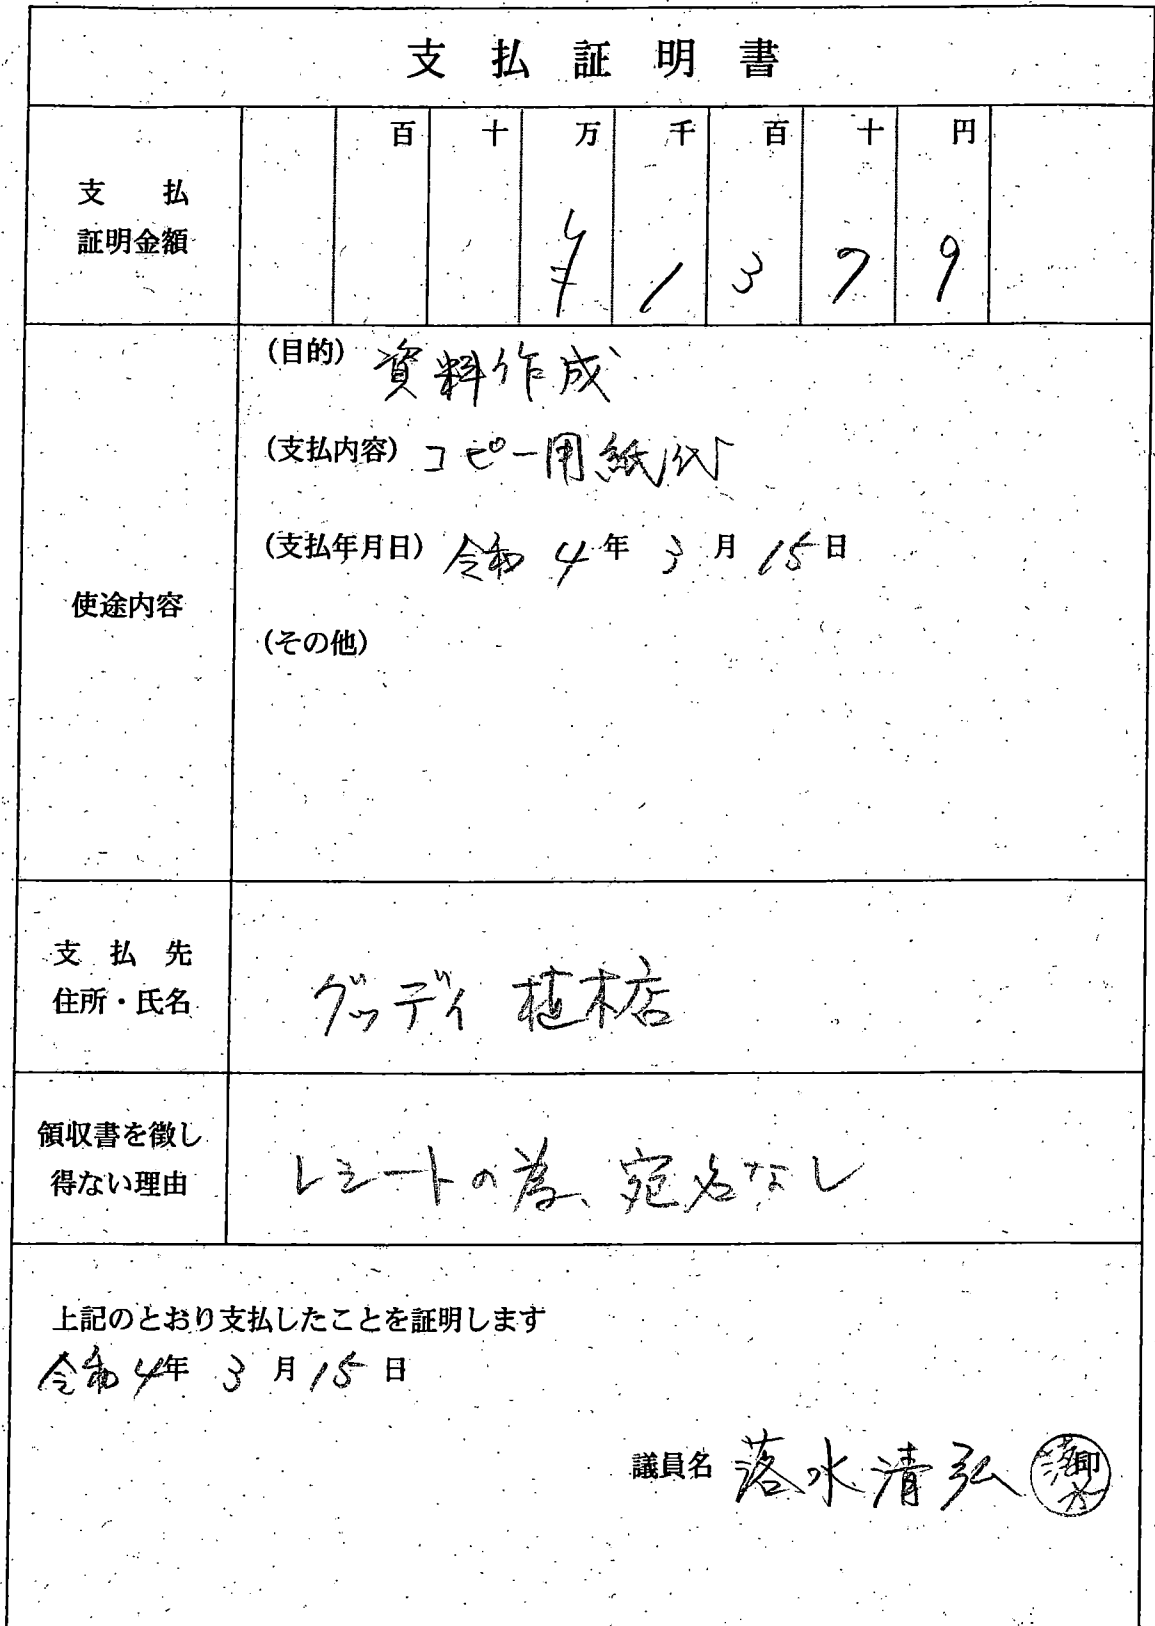 支払証明書
百 十 万 千 百 十 円
支払
証明金額
¥ 1 3 7 9
(目的) 資料作成
(支払内容) コピー用紙代
(支払年月日) 令和 4 年 3 月 15 日
使途内容
(その他)
支払先
住所・氏名
グッディ 植木店
領収書を徴し
得ない理由
レシートの為、宛名なし
上記のとおり支払したことを証明します
令和 4 年 3 月 15 日
議員名 落水清弘 印 落水